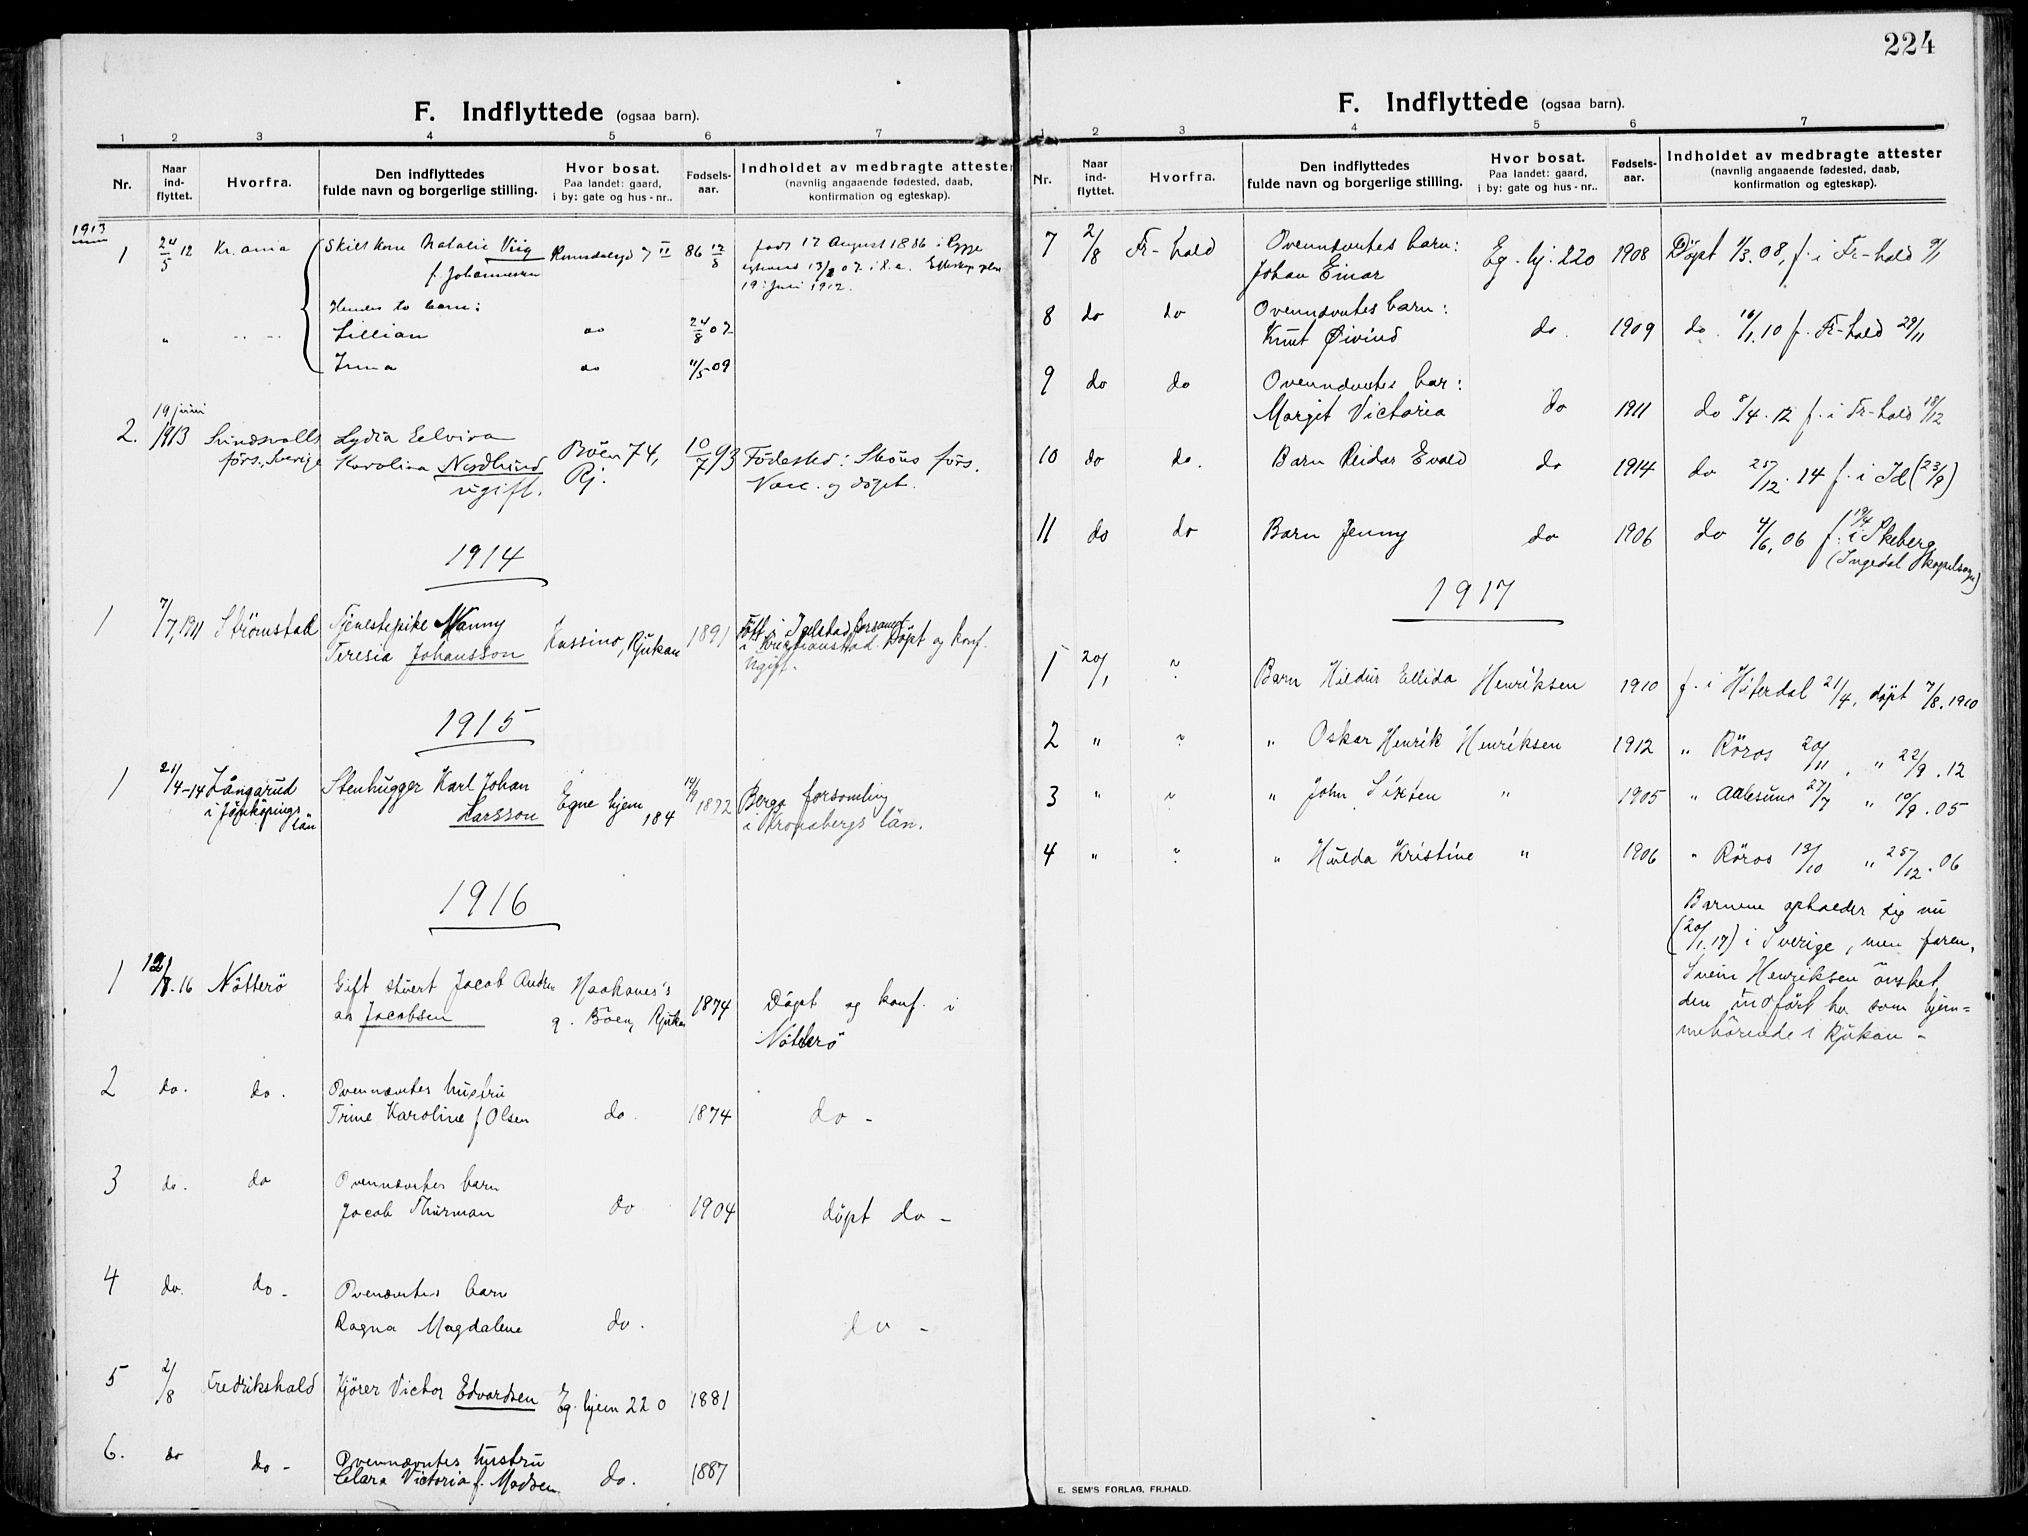 224
F. Indflyttede (ogsaa barn).
1 2 3 4 5 6 7
Nr.
Naar ind- flyttet.
Hvorfra.
Den indflyttedes fulde navn og borgerlige stilling.
Hvor bosat. Paa landet: gaard, i by: gate og hus-nr..
Fødsels- aar.
Indholdet av medbragte attester (navnlig angaaende fødested, daab, konfirmation og egteskap).
1913
1 24/5 12 Kr.ania Natalie Viig 7 II 86 12/8 født 17 August 1886 i Rygge
f. Johannesen
19 juni 1912.
Hendes to barn:
" Lillian do 24/8 07
Irma do 11/5 09
19 juni
2. 1913 Lydia Elvira Böen 74, 10/7 93 Födested: Sköns förs.
förs., Sverige Karolina Nordlund Rj. Vacc. og döpt.
ugift.
1914
1 7/7 1911 Strömstad Tjenestepike Nanny Kassino, Rjukan 1891
Teresia Johansson i Kristianstad. Döpt og konf.
Ugift.
1915
1 21/4-14 Långarud Stenhugger Karl Johan Egne hjem 14/9 1872 Berga forsamling
i Jönköpings Larsson 184 i Kronobergs län.
län
1916
1 12/8.16 Nötterö Gift stuert Jacob Andre- Haakones's 1874 Döpt og konf. i
as Jacobsen g. Böen, Rjukan Nötterö
2 do. do. Ovennævntes hustru
Trine Karoline f Olsen do. 1874 do -
3 do. do Ovennævntes barn
Jacob Thurman do 1904 döpt do -
4 do. do - Ovenævntes barn
Ragna Magdalene do. do -
5 2/8 Fredrikshald Kjörer Victor Edvardsen Eg. hjem 220 1881
6. do do - Ovennævntes hustru
Clara Victoria f. Madsen do. 1887
F. Indflyttede (ogsaa barn).
1 2 3 4 5 6 7
Nr.
Naar ind- flyttet.
Hvorfra.
Den indflyttedes fulde navn og borgerlige stilling.
Hvor bosat. Paa landet: gaard, i by: gate og hus-nr..
Fødsels- aar.
Indholdet av medbragte attester (navnlig angaaende fødested, daab, konfirmation og egteskap).
7 2/8 Fr-hald Ovennævntes barn: Eg. hj: 220 1908 Döpt 1/3.08, f. i Fr-hald 9/1
Johan Einar
8 do do Ovennævntes barn:
Knut Øivind do. 1909 do. 16/1.10 f. Fr-hald 29/11
9 do do Ovenndvntes bar:
Margit Victoria do 1911 do 8/4.12 f. i Fr-hald 18/12
10 do do. Barn Reidar Evald do 1914 do 25/12.14 f. i Id (23/9)
11 do do Barn Jenny do 1906 do 4/6.06 f. 19/4 i Skeberg
(Ingedal kapelsogn)
1917
1 20/1 ? Barn Hildur Ellida Henriksen 1910 f. i Hiterdal 21/4, döpt 7/8.1910
2 " ? " Oskar Henrik Henriksen 1912 " Röros 20/11, " 22/9.12
3 " ? " John Sixten " 1905 " Aalesund 27/7 " 10/9.05
4 " ? " Hulda Kristine " 1906 " Röros 13/10 " 25/12.06
Barnene opholder sig nu
(20/1.17) i Sverige, men faren,
Svein Henriksen önsket
den indfört her som hjem=
mehörende i Rjukan -
E. SEM'S FORLAG, FR.HALD.